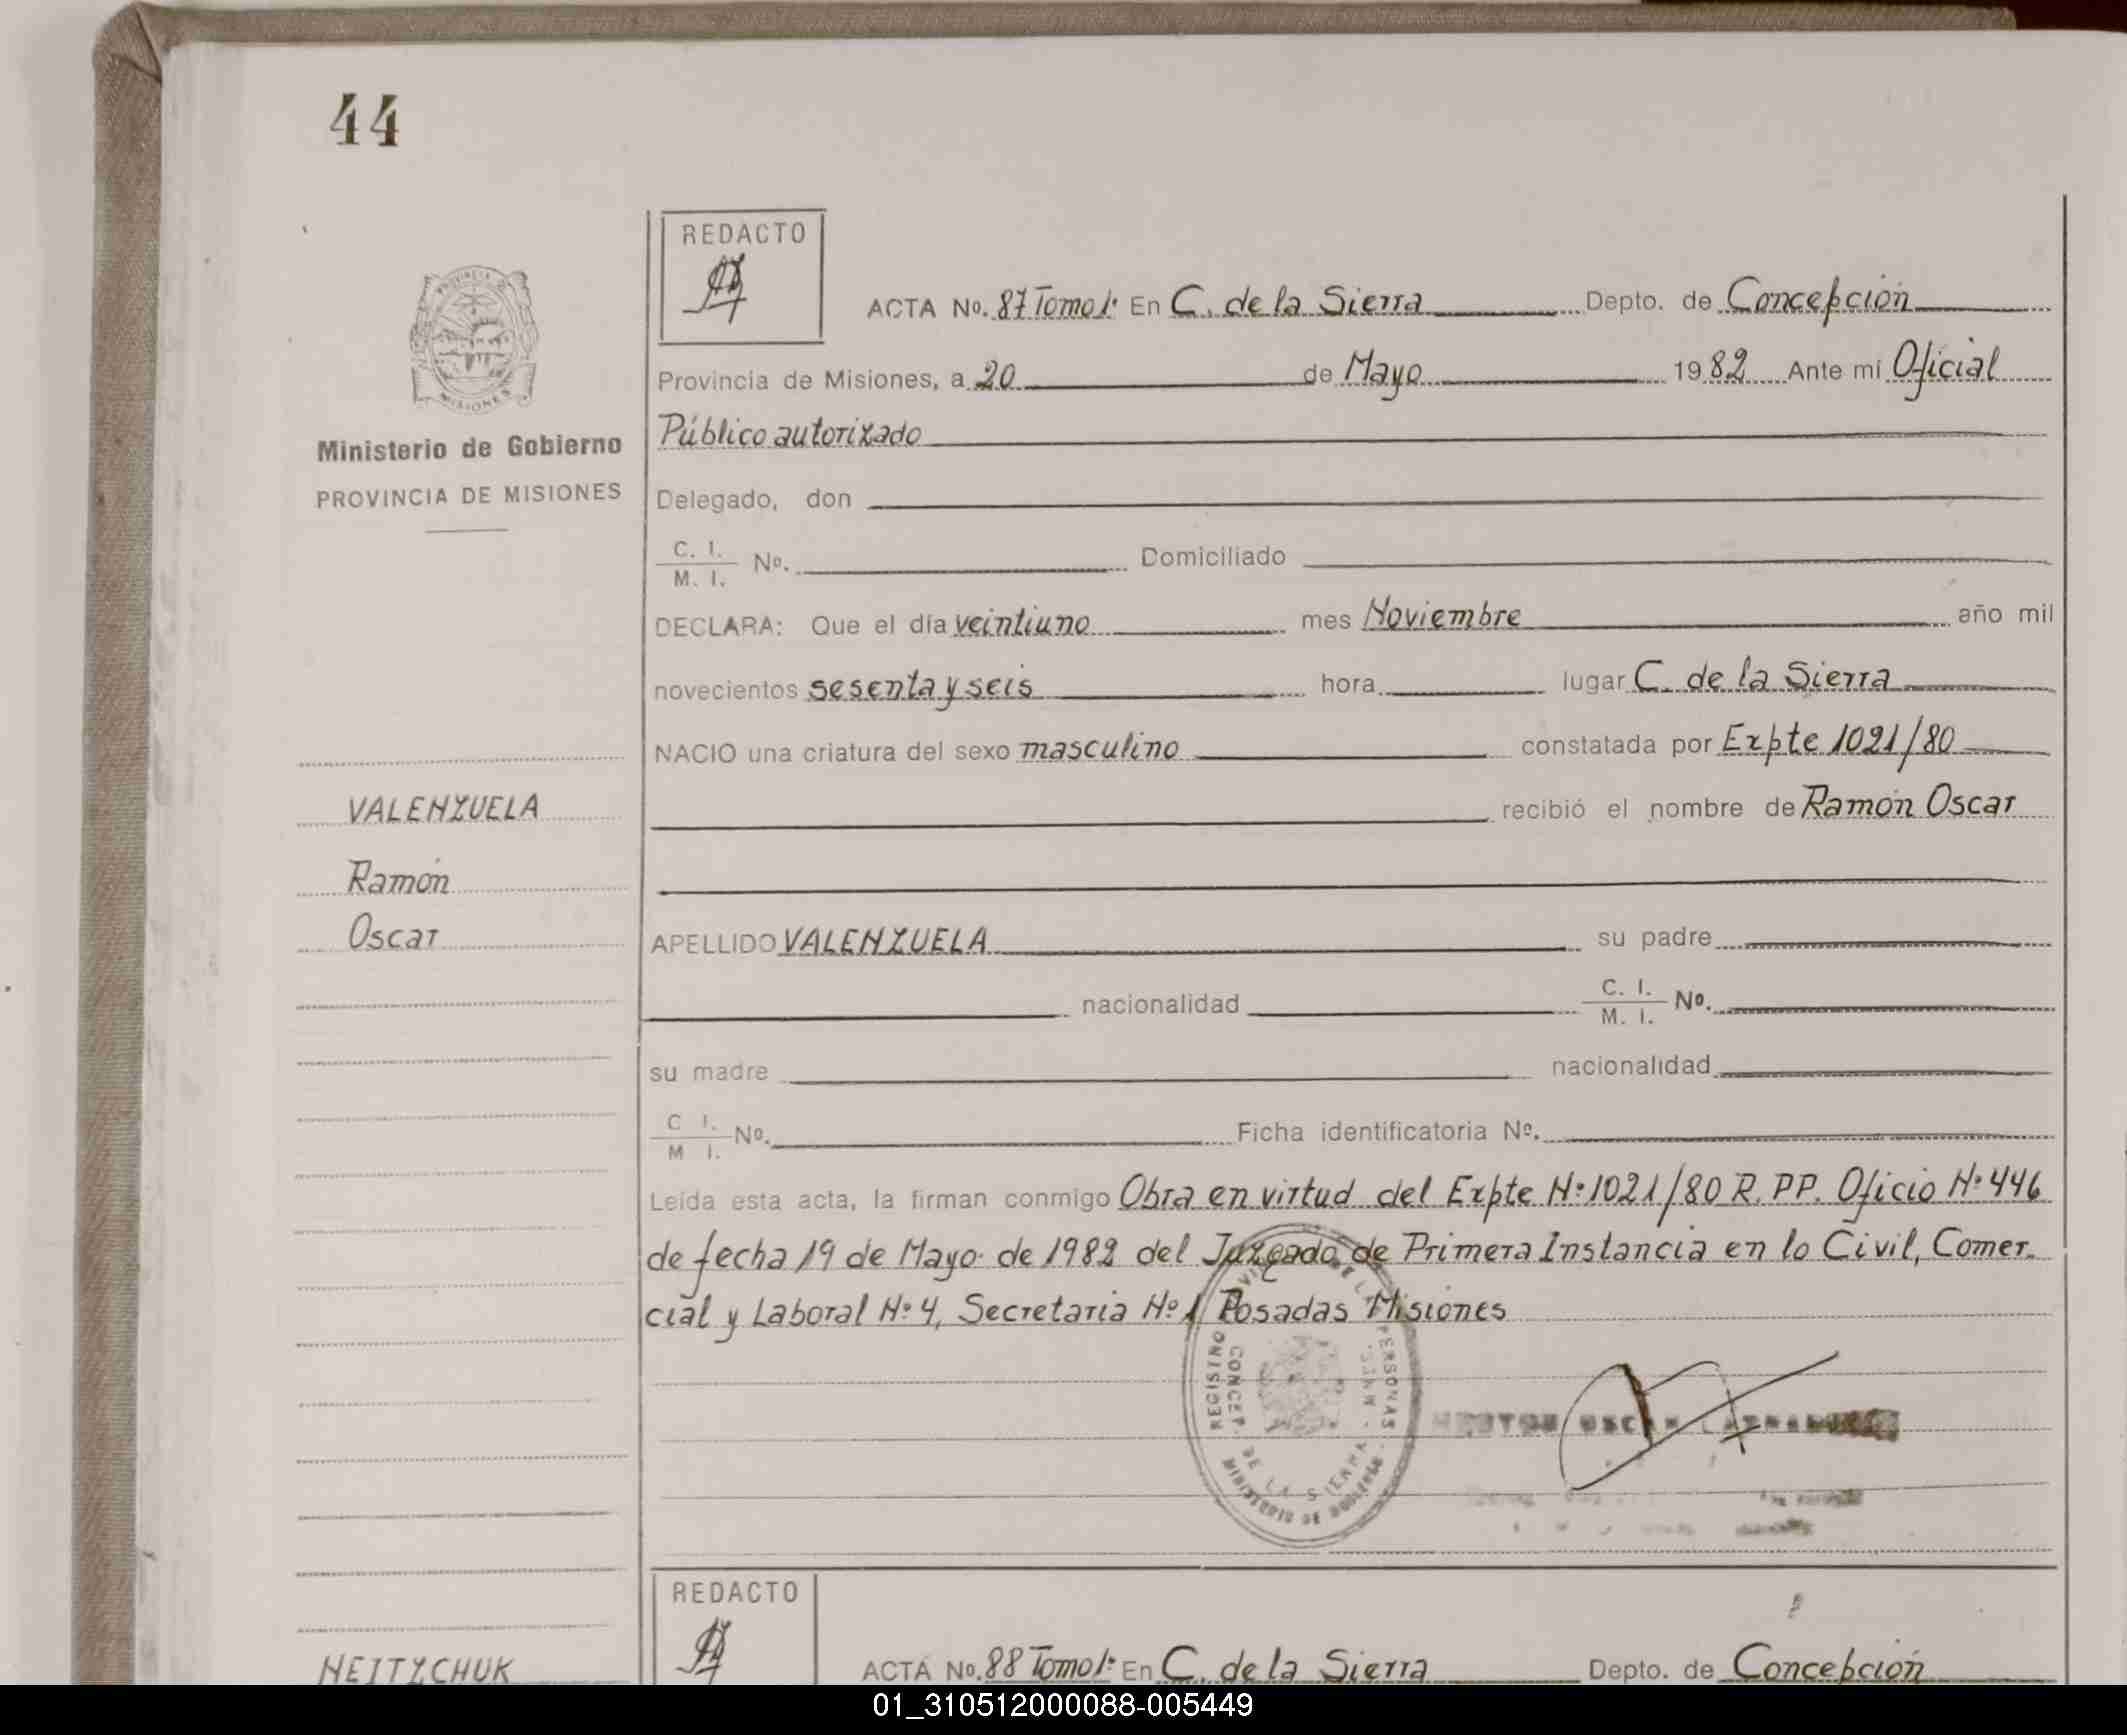 44
REDACTO
ACTA No. 87 Tomo 1º En C. de la Sierra Depto. de Concepción
Provincia de Misiones, a 20 de Mayo 1982 Ante mí Oficial
Público autorizado
Ministerio de Gobierno
PROVINCIA DE MISIONES
Delegado, don
C. I.
M. I. Nº. Domiciliado
DECLARA: Que el día veintiuno mes Noviembre año mil
novecientos sesenta y seis hora lugar C. de la Sierra
NACIO una criatura del sexo masculino constatada por Expte 1021/80
VALENZUELA
recibió el nombre de Ramón Oscar
Ramón
Oscar
APELLIDO VALENZUELA su padre
nacionalidad C. I.
M. I. Nº.
su madre nacionalidad
C I.
M I. Nº. Ficha identificatoria Nº.
Leída esta acta, la firman conmigo Obra en virtud del Expte Nº 1021/80 R. PP. Oficio Nº 446
de fecha 19 de Mayo de 1982 del Juzgado de Primera Instancia en lo Civil, Comer-
cial y Laboral Nº 4, Secretaria Nº 1 Posadas Misiones
REGISTRO PROVINCIAL DE LAS PERSONAS
CONCEP. DE LA SIERRA - MNES.
MINISTERIO DE GOBIERNO
REDACTO
NEITZCHUK
ACTA No. 88 Tomo 1º En C. de la Sierra Depto. de Concepción
01_310512000088-005449